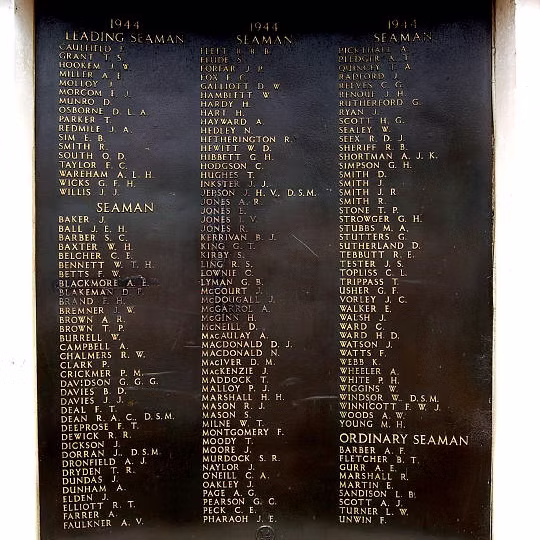 1944
LEADING SEAMAN
CAULFIELD F.
GRANT T. S.
HOOKEM J. W.
MILLER A. E.
MOLLOY J.
MORCOM E. J.
MUNRO D.
OSBORNE D. L. A.
PARKER T.
REDMILE J. A.
SIM E. B.
SMITH R.
SOUTH O. D.
TAYLOR F. C.
WAREHAM A. L. H.
WICKS G. F. H.
WILLIS J. J.
SEAMAN
BAKER J.
BALL J. E. H.
BARBER S. C.
BAXTER W. H.
BELCHER C. E.
BENNETT W. T. H.
BETTS F. W.
BLACKMORE A. E.
BLAKEMAN D. P.
BRAND F. H.
BREMNER J. W.
BROWN A. R.
BROWN T. P.
BURRELL W.
CAMPBELL A.
CHALMERS R. W.
CLARK P.
CRICKMER P. M.
DAVIDSON G. G. G.
DAVIES B. D.
DAVIES J. J.
DEAL F. T.
DEAN R. A. C., D.S.M.
DEEPROSE F. T.
DEWICK R. R.
DICKSON J.
DORRAN J., D.S.M.
DRONFIELD A. J.
DRYDEN T. R.
DUNDAS J.
DUNHAM A.
ELDEN J.
ELLIOTT R. T.
FARRER A.
FAULKNER A. V.
1944
SEAMAN
FLEET R. R. B.
FLUDE S.
FORFAR J. P.
FOX F. C.
GALLIOTT D. W.
HAMBLETT W.
HARDY H.
HART H.
HAYWARD A.
HEDLEY N.
HETHERINGTON R.
HEWITT W. D.
HIBBETT G. H.
HODGSON C.
HUGHES T.
INKSTER J. J.
JEPSON J. H. V., D.S.M.
JONES A. R.
JONES E.
JONES I. V.
JONES R.
KERRIVAN B. J.
KING G. T.
KIRBY S.
LING R. S.
LOWNIE C.
LYMAN G. B.
McCOURT J.
McDOUGALL J.
McGARROL A.
McGINN H.
McNEILL D.
MACAULAY A.
MACDONALD D. J.
MACDONALD N.
MACIVER D. M.
McKENZIE J.
MADDOCK T.
MALLOY P. J.
MARSHALL H. H.
MASON R. J.
MASON S.
MILNE W. T.
MONTGOMERY F.
MOODY T.
MOORE J.
MURDOCK S. R.
NAYLOR J.
O'NEILL C. A.
OAKLEY J.
PAGE A. G.
PEARSON G. C.
PECK C. E.
PHARAOH J. E.
1944
SEAMAN
PICKTHALL A.
PLEDGER A. T.
QUINCEY T. A.
RADFORD J.
REEVES C. G.
RENOUF J. H.
RUTHERFORD G.
RYAN J.
SCOTT H. G.
SEALEY W.
SEEX R. D. J.
SHERIFF R. B.
SHORTMAN A. J. K.
SIMPSON G. H.
SMITH D.
SMITH J.
SMITH J. R.
SMITH R.
STONE T. P.
STROWGER G. H.
STUBBS M. A.
STUTTERS G.
SUTHERLAND D.
TEBBUTT R. E.
TESTER J. S.
TOPLISS C. L.
TRIPPASS T.
USHER G. F.
VORLEY J. C.
WALKER E.
WALSH J.
WARD C.
WARD H. D.
WATSON J.
WATTS F.
WEBB K.
WHEELER A.
WHITE P. H.
WIGGINS W.
WINDSOR W., D.S.M.
WINNICOTT F. W. J.
WOODS A. W.
YOUNG M. H.
ORDINARY SEAMAN
BARBER A. F.
FLETCHER B. T.
GURR A. E.
MARSHALL R.
MARTIN E.
SANDISON L. B.
SCOTT A. J.
TURNER L. W.
UNWIN F.